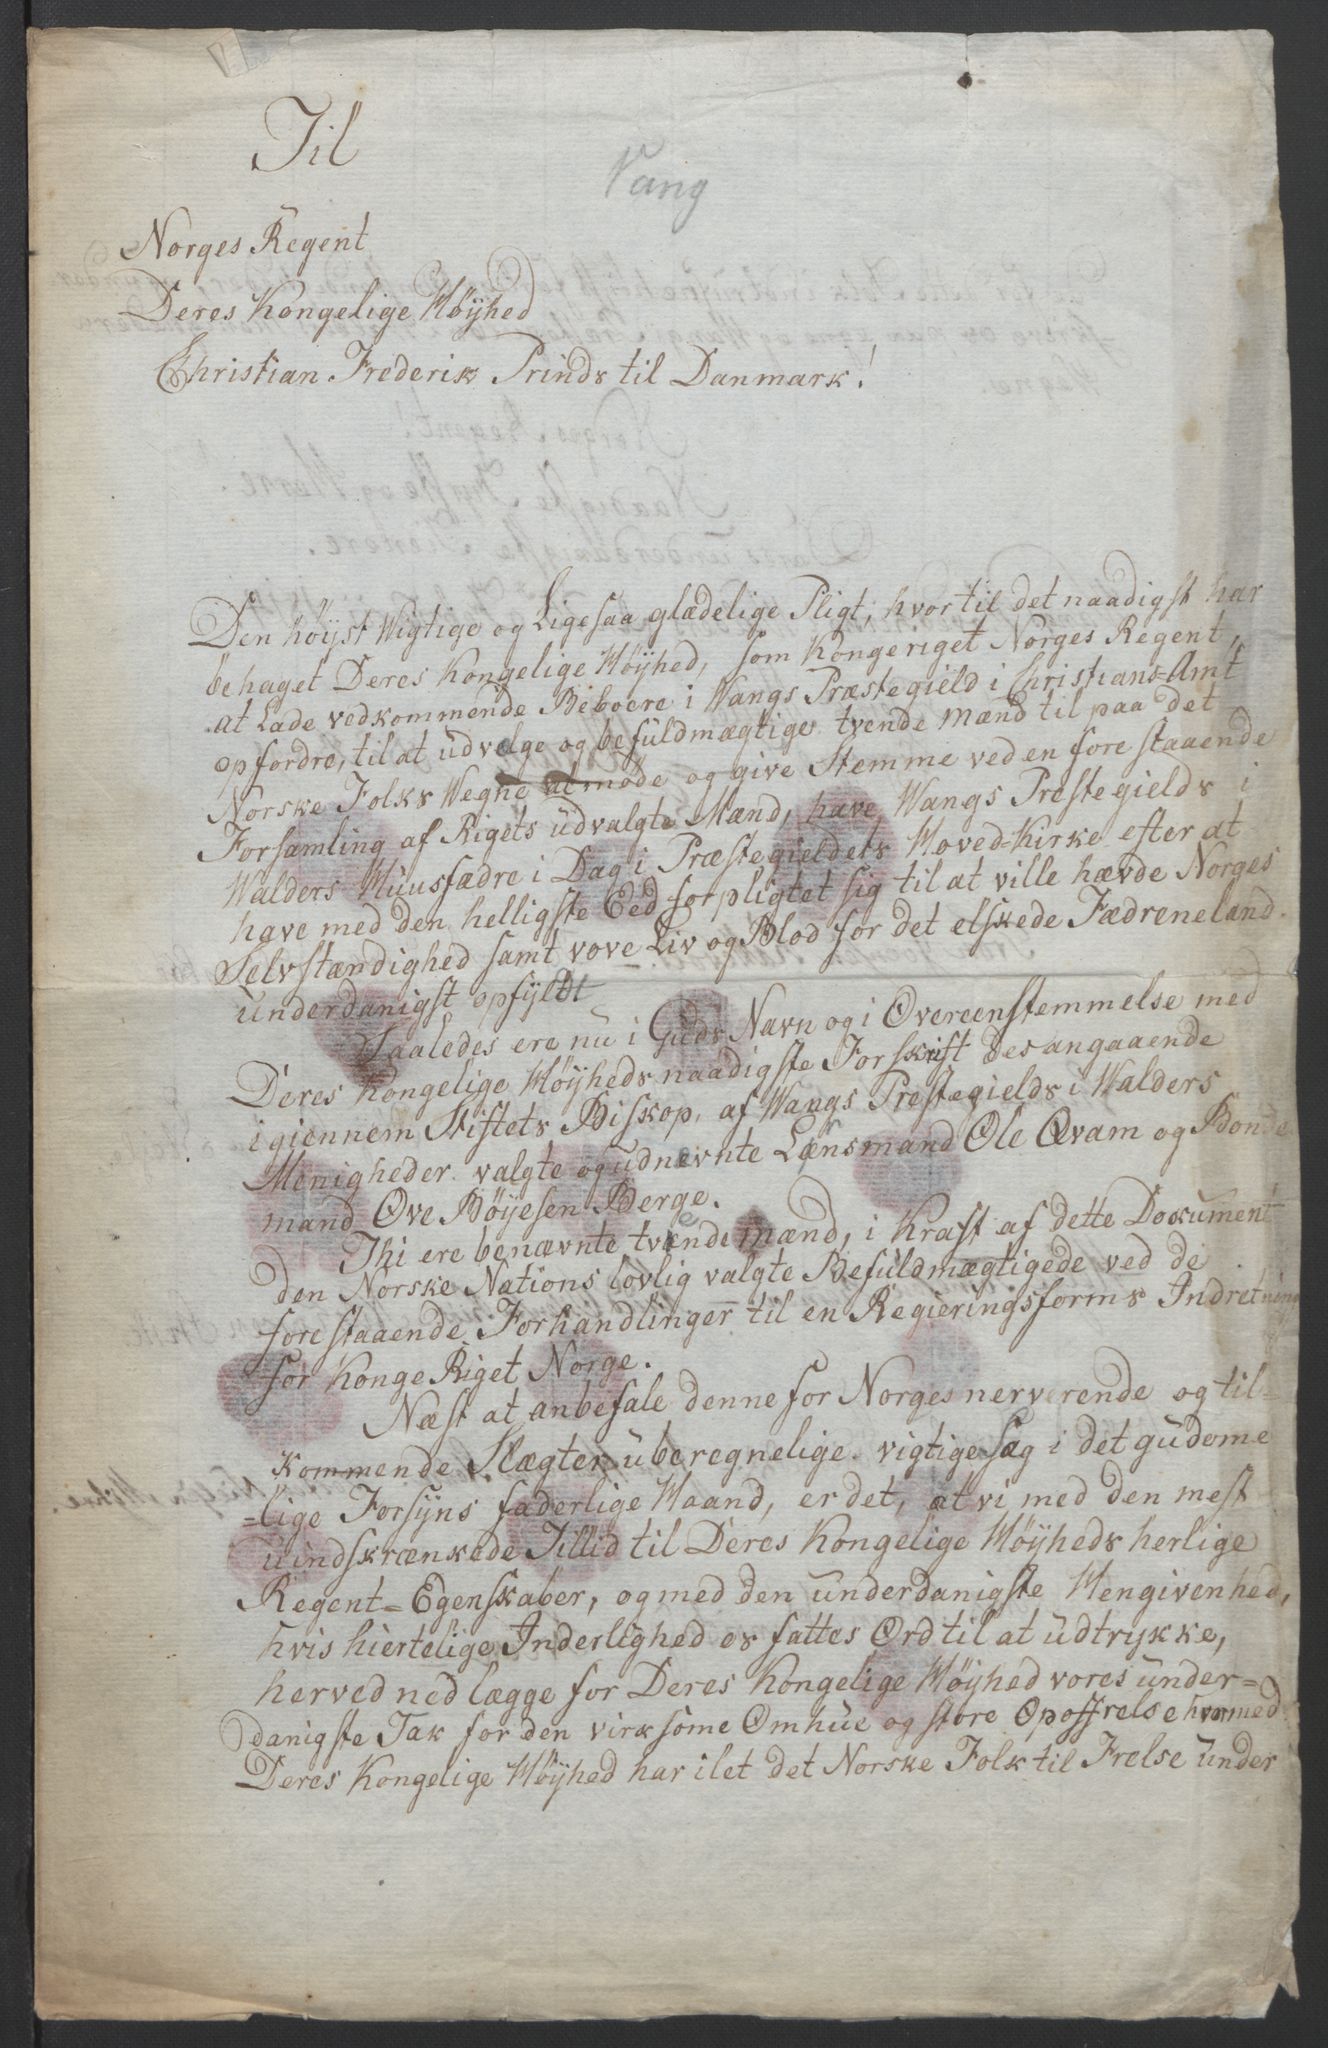 Til
Vang
Norges Regent
Deres Kongelige Høyhed
Christian Frederik Prinds til Danmark!
Den høyst Wigtige og Ligesaa glædelige Pligt, hvortil det naadigst har
behaget Deres Kongelige Høyhed, som Kongeriget Norges Regent,
at Lade vedkommende Beboere i Wangs Præstegield i Christians Amt
opfordre, til at udvælge og befuldmægtige tvende Mænd til paa det
Norske Folks Wegne at møde og give Stemme ved en forestaaende
Forsamling af Rigets udvalgte Mænd, have Wangs Prestegields i
Walders Huusfædre i Dag i Præstegieldets Hoved-Kirke efter at
have med den helligste Eed forpligtet sig til at ville hævde Norges
Selvstændighed samt vove Liv og Blod for det elskede Fædreneland
underdanigst opfyldt
Saaledes ere nu i Guds Navn og i Overeenstemmelse med
Deres Kongelige Høyheds naadigste Forskrift des angaaende
igiennem Stiftets Biskop, af Wangs Prestegields i Walders
Menigheder valgte og udnevnte Lensmand Ole Qvam og Bonde
mand Ove Bøyesen Berge.
Thi ere benævnte tvende mænd, i Kraft af dette Document
den Norske Nations lovlig valgte Befuldmægtigede ved de
forestaaende Forhandlinger til en Regieringsforms Indretning
for Konge Riget Norge.
Næst at anbefale denne for Norges nerværende og til=
kommende Slægter uberegnelige vigtige Sag i det gudomme
=lige Forsyns faderlige Haand, er det, at vi med den mest
uindskrænkede Tillid til Deres Kongelige Høyheds herlige
Regent=Egenskaber, og med den underdanigste Hengivenhed,
hvis hiertelige Inderlighed os fattes Ord til at udtrykke,
herved nedlægge for Deres Kongelige Høyhed vores under=
danigste Tak for den virksomme Omhue og store Opoffrelse hvormed
Deres Kongelige Høyhed har ilet det Norske Folk til Frelse under